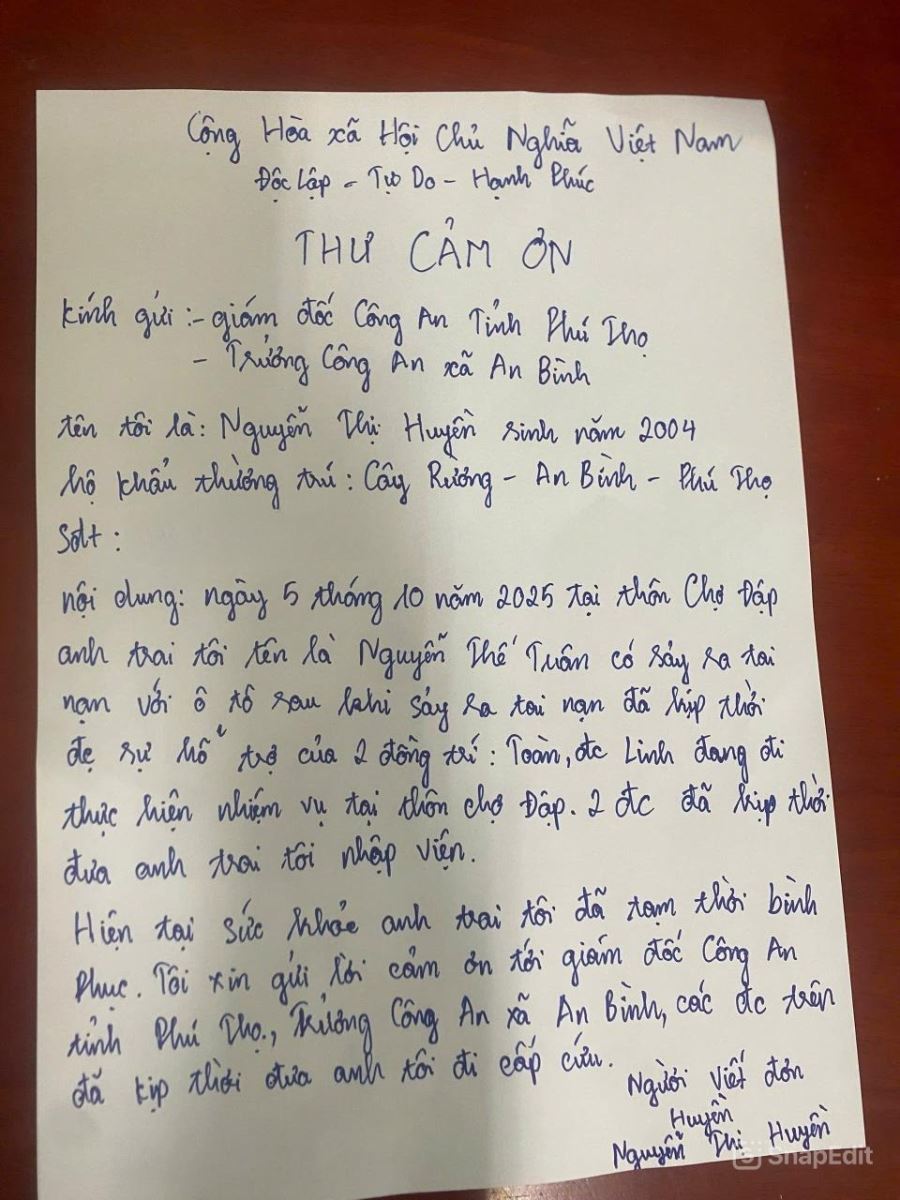 Cộng Hòa xã Hội Chủ Nghĩa Việt Nam
Độc Lập - Tự Do - Hạnh Phúc
THƯ CẢM ƠN
Kính gửi :- giám đốc Công An Tỉnh Phú Thọ
- Trưởng Công An xã An Bình
tên tôi là: Nguyễn Thị Huyền sinh năm 2004
hộ khẩu thường trú : Cây Rường - An Bình - Phú Thọ
Sđt :
nội dung: ngày 5 tháng 10 năm 2025 tại thôn Chợ Đập
anh trai tôi tên là Nguyễn Thế Tuân có sảy ra tai
nạn với ô tô sau khi sảy ra tai nạn đã kịp thời
đc sự hỗ trợ của 2 đồng trí : Toàn, đc Linh đang đi
thực hiện nhiệm vụ tại thôn chợ Đập. 2 đc đã kịp thời
đưa anh trai tôi nhập viện.
Hiện tại sức khỏe anh trai tôi đã tạm thời bình
Phục. Tôi xin gửi lời cảm ơn tới giám đốc Công An
tỉnh Phú Thọ., Trưởng Công An xã An Bình, các đc trên
đã kịp thời đưa anh tôi đi cấp cứu.
Người viết đơn
Huyền
Nguyễn Thị Huyền
SnapEdit